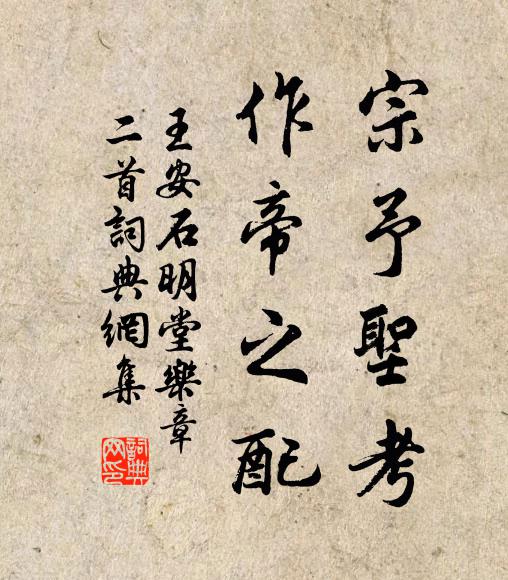 宗予聖考
作帝之配
王安石明堂樂章
二首詞典網集
詞典網印